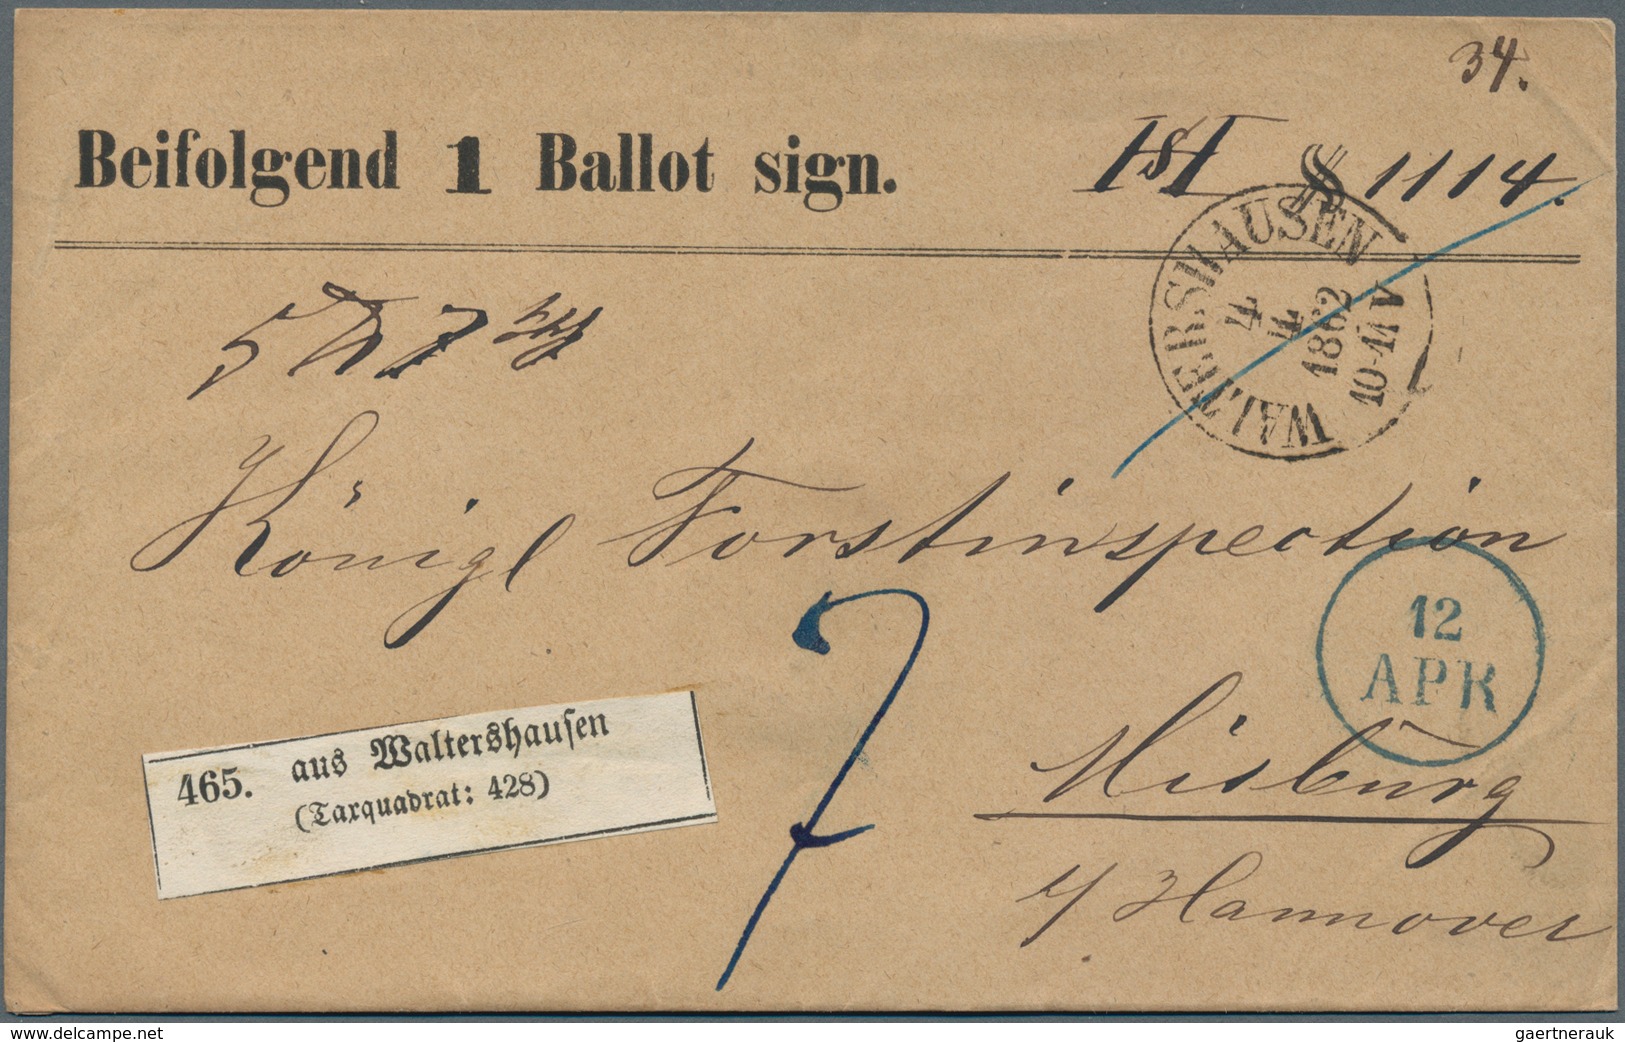 34.
Beifolgend 1 Ballot sign. IST § 1114.
WALTERSHAUSEN
4
4
1862
10-11 V
5 7
Königl Forstinspection
12
APR
465. aus Waltershauſen
(Taxquadrat: 428)
7
Misburg
Hannover
www.delcampe.net
gaertnerauk